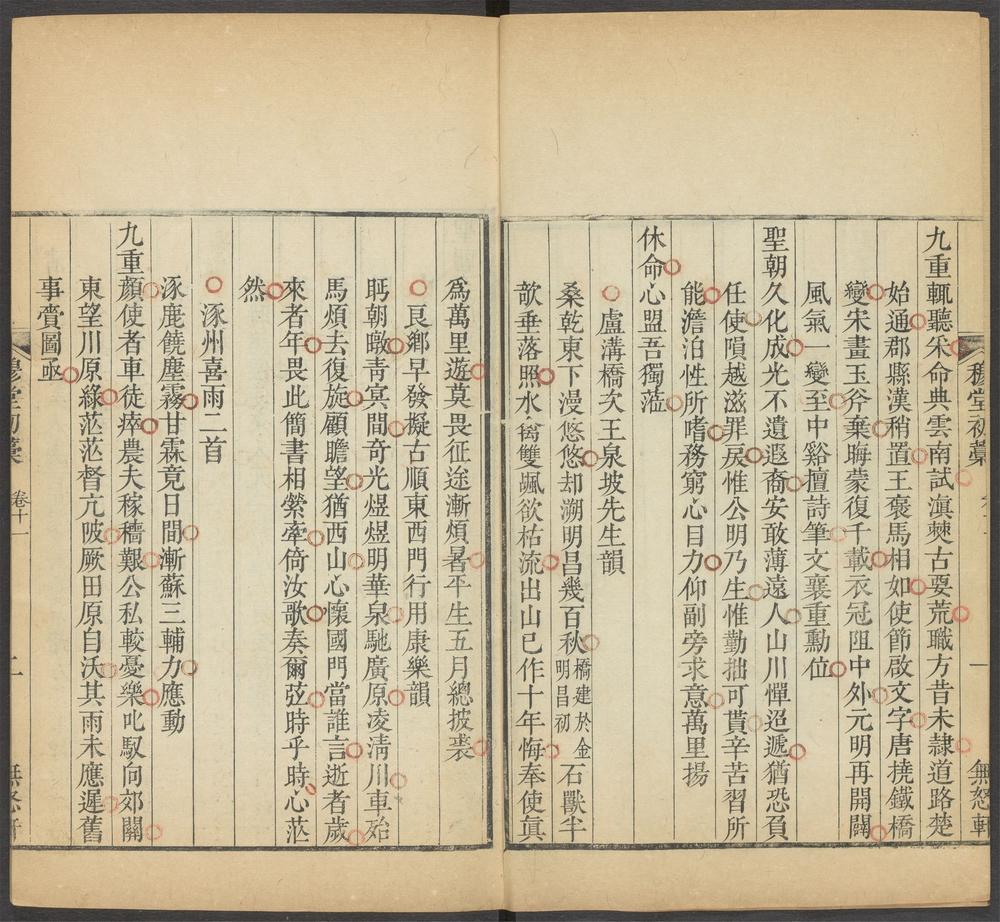 穆堂初藁
一
無怒軒
九重輒聽采命典雲南試滇僰古要荒職方昔未隷道路楚
始通郡縣漢稍置王褒馬相如使節啟文字唐撓鐵橋
變宋畫玉斧棄晦蒙復千載衣冠阻中外元明再開闢
風氣一變至中谿擅詩筆文襄重勳位
聖朝久化成光不遺遐裔安敢薄遠人山川憚迢遞猶恐負
任使隕越滋罪戾惟公明乃生惟勤拙可貰辛苦習所
能澹泊性所嗜務窮心目力仰副旁求意萬里揚
休命心盟吾獨蒞
盧溝橋次王泉坡先生韻
桑乾東下漫悠悠却溯明昌幾百秋橋建於金明昌初石獸半
欹垂落照水禽雙颯欲枯流出山已作十年悔奉使眞
爲萬里遊莫畏征途漸煩暑平生五月總披裘
良鄉早發擬古順東西門行用康樂韻
眄朝暾靑冥間奇光煜煜明華泉馳廣原凌淸川車殆
馬煩去復旋顧瞻望猶西山心懷國門當誰言逝者歲
來者年畏此簡書相縈牽倚汝歌奏爾弦時乎時心茫
然
涿州喜雨二首
涿鹿饒塵霧甘霖竟日間漸蘇三輔力應動
九重顏使者車徒瘁農夫稼穡艱公私較憂樂叱馭向郊關
東望川原綠茫茫督亢陂厥田原自沃其雨未應遲舊
事賷圖亟
穆堂初藁
卷十一
二
無怒軒